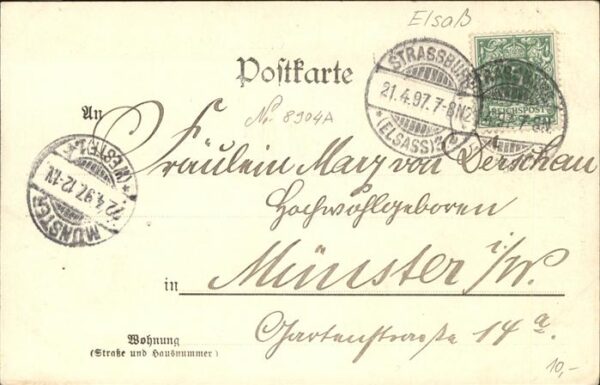 Elsaß
Postkarte
STRASSBURG
21.4.97.7-8N
(ELSASS)
REICHSPOST
No. 8904A
An
Fräulein Mary von Derschau
Hochwohlgeboren
in Münster i/W.
Gartenstraße 14 a.
Wohnung
(Straße und Hausnummer)
MÜNSTER
22.4.97.12-1N
(WESTF.)
10,-